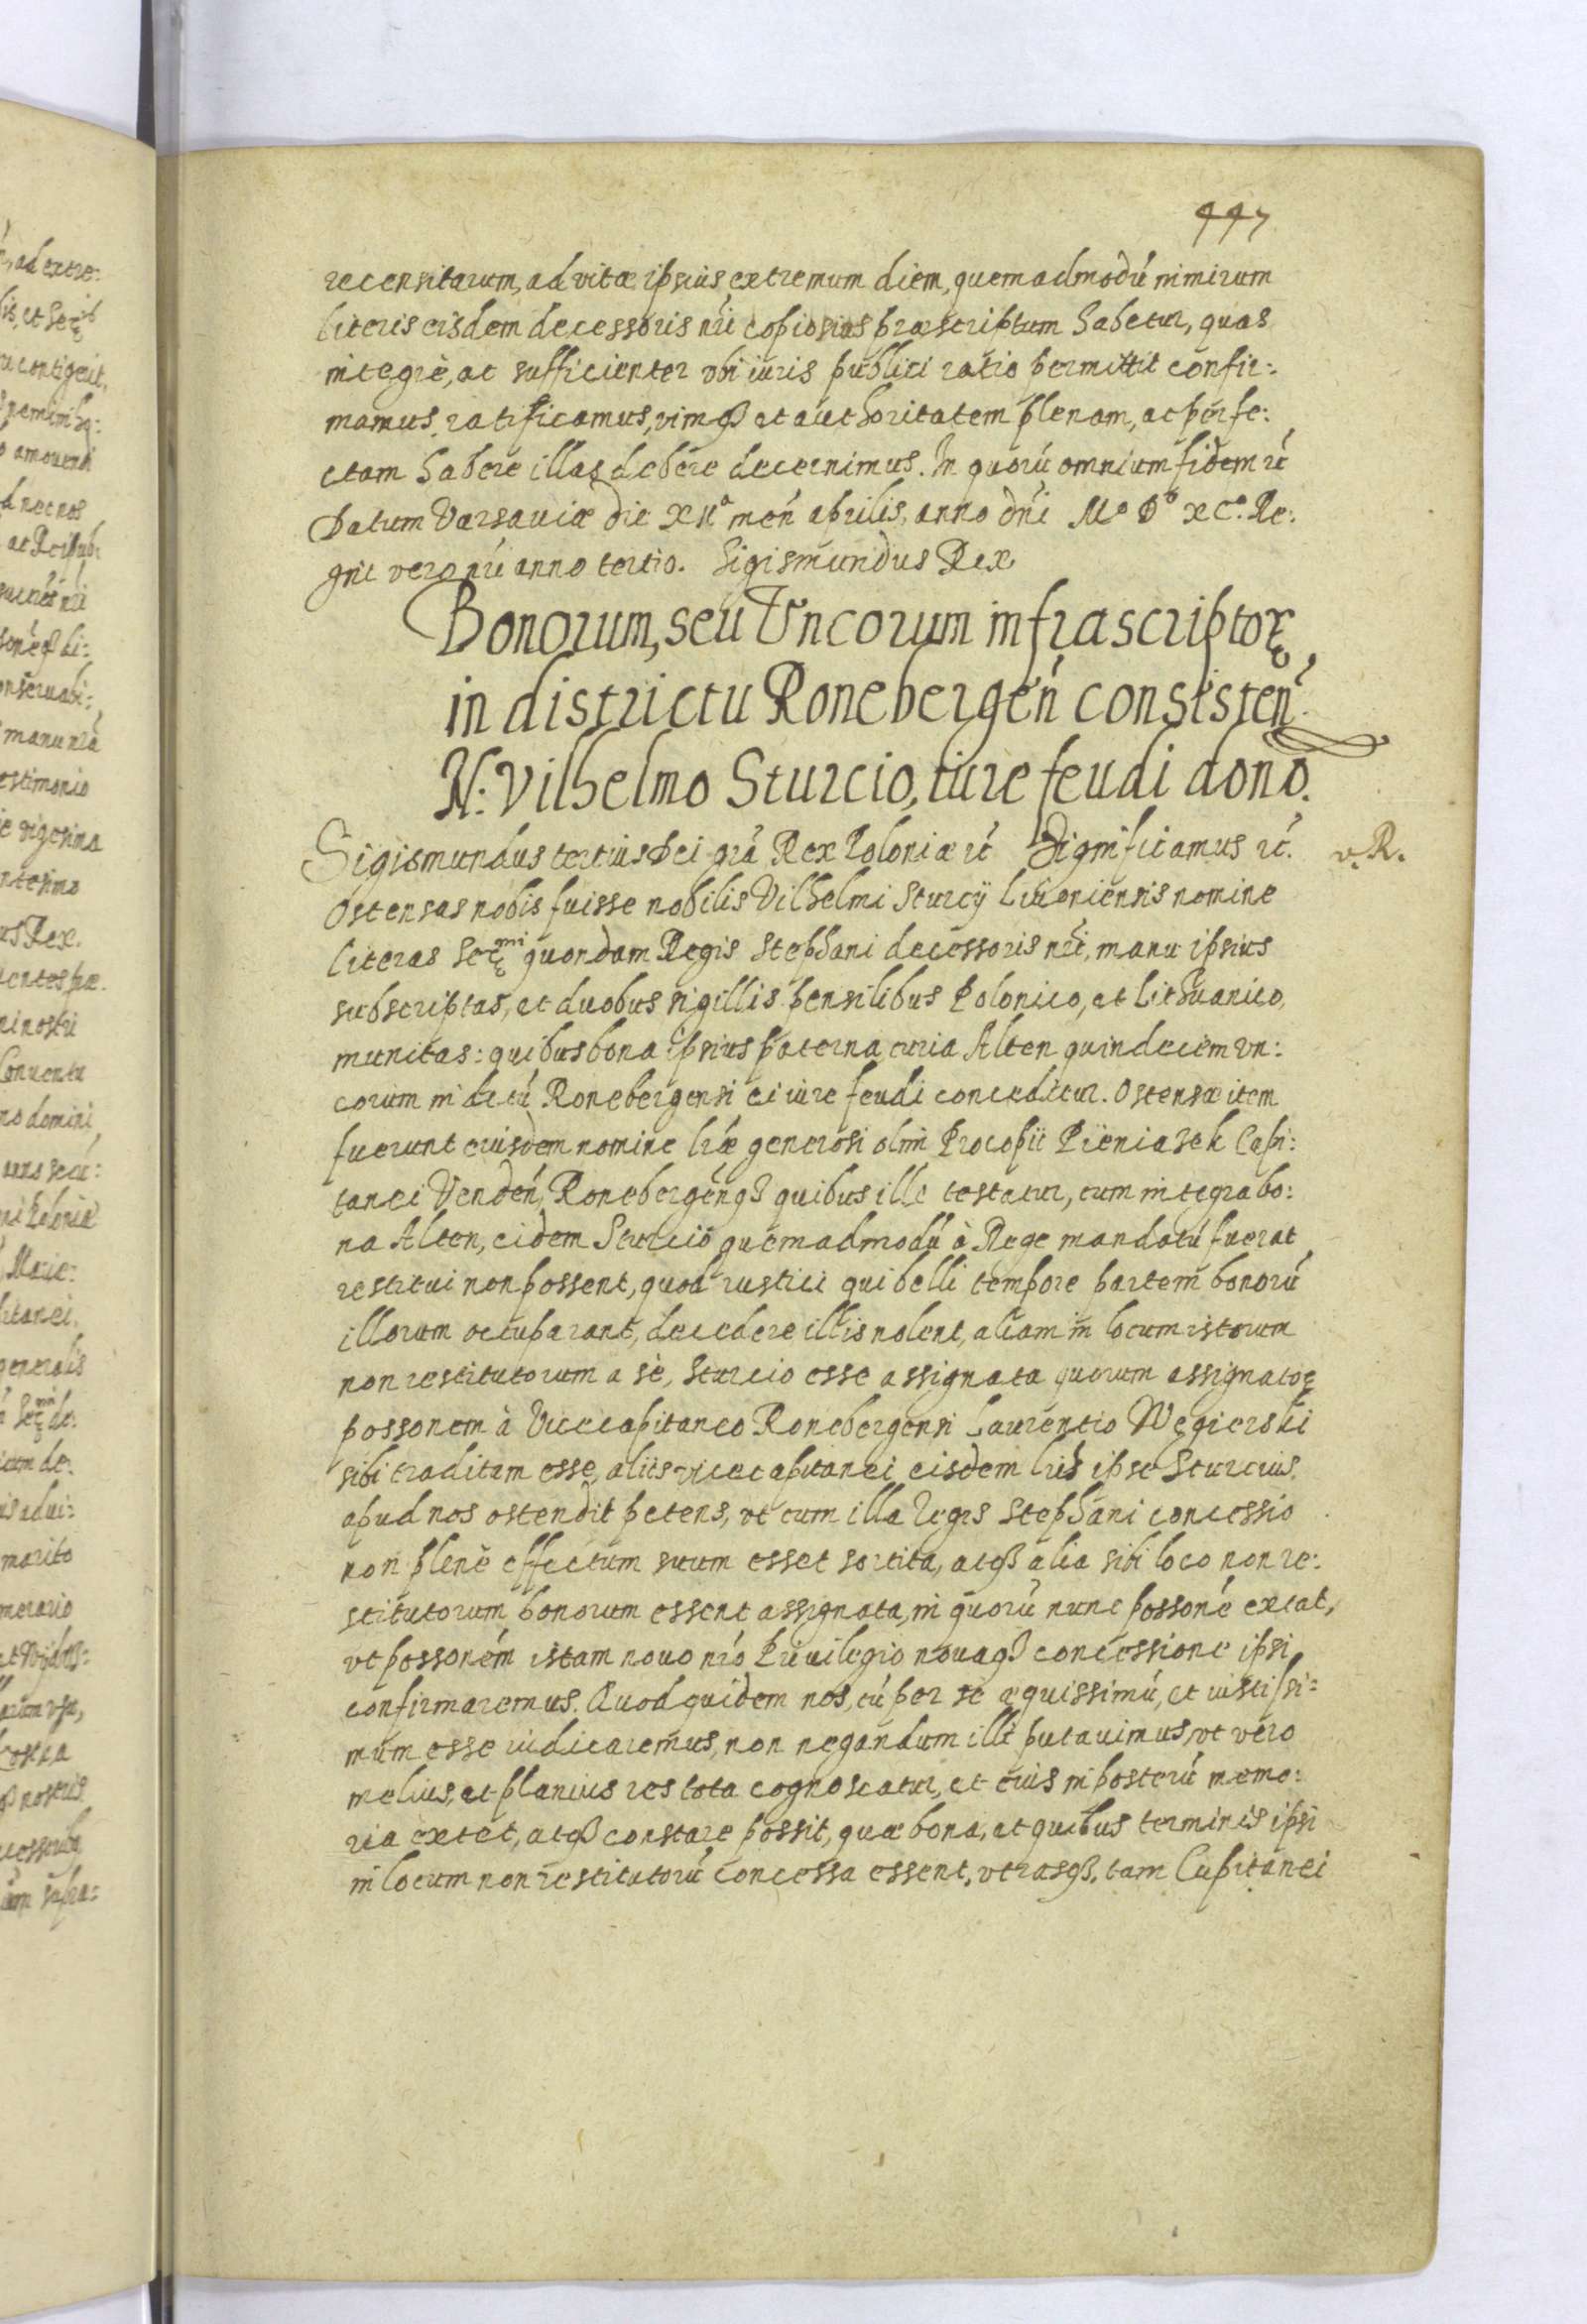 447
recensitarum, ad vitæ ipsius extremum diem, quemadmodú nimirum
literis eisdem decessoris nři copiosius præscriptum habetur, quas
integrè, ac sufficienter vbi iuris publici ratio permittit confir:
mamus, ratificamus, vimqȝ et authoritatem plenam, ac perfe:
ctam habere illas debere decernimus. In quorú omnium fidem rc̃
Datum Varsauiæ die XIIª meń aprilis, anno dńi Mº Dº XCº. Re:
gni vero nři anno tertio. Sigismundus Rex
Bonorum, seu Vncorum infrascriptoꝝ
in districtu Ronebergeń consisteń
N: Vilhelmo Sturcio, iure feudi dono.
Sigismundus tertius Dei grã Rex Poloniæ rc̃ Significamus rc̃. v. R.
Ostensas nobis fuisse nobilis Vilhelmi Sturcij Liuoniensis nomine
literas Seꝝmi quondam Regis Stephani decessoris nři, manu ipsius
subscriptas, et duobus sigillis pensilibus Polonico, et Lithuanico,
munitas: quibus bona ipsius paterna curia Alten quindecim vn:
corum in dictú Ronebergensi ei iure feudi conceditur. Ostensæ item
fuerunt eiusdem nomine lřæ generosi olim Procopii Piieniazek Capi:
tanei Vendeń, Ronebergeńqȝ quibus ille testatur, cum integra bo:
na Alten, eidem Sturcio quemadmodú à Rege mandatú fuerat
restitui non possent, quod rustici qui belli tempore partem bonorú
illorum occuparant, decedere illis nolent, aliam in locum istorum
non restitutorum a sè, Sturcio esse assignata quorum assignatoꝝ
possonem à Vicecapitaneo Ronebergensi Laurentio Wegierski
sibi traditam esse, aliis vicecapitanei eisdem lřis ipse Sturcius
apud nos ostendit petens, vt cum illa Regis Stephani concessio
non plenè effectum suum esset sortita, atqȝ alia sibi loco non re:
stitutorum bonorum essent assignata, in quorú nunc possoné extat,
vt possoném istam nouo nřo Priuilegio nouaqȝ concessione ipsi
confirmaremus. Quod quidem nos, cú per se æquissimú, et iustissi:
mum esse iudicaremus, non negandum illi putauimus, vt vero
melius, et planius res tota cognoscatur, et eius in posterú memo:
ria extet, atqȝ constare possit, quæ bona, et quibus terminis ipsi
in locum non restitutorú concessa essent, vtrasqȝ, tam Capitanei